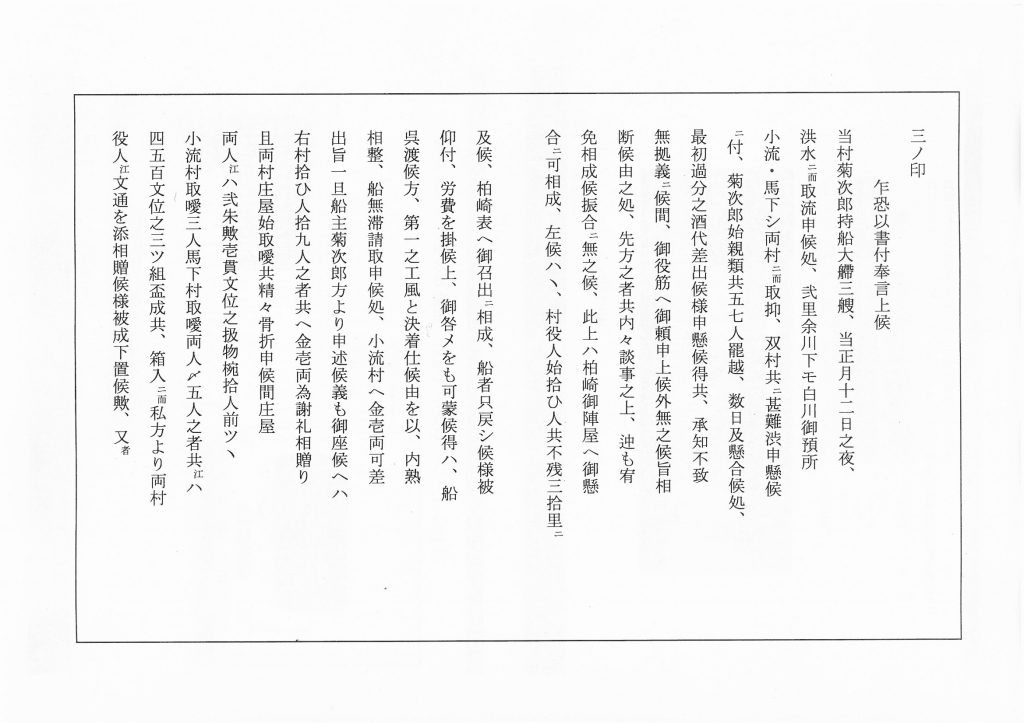 三ノ印
乍恐以書付奉言上候
当村菊次郎持船大艜三艘、当正月十二日之夜、
洪水ニ而取流申候処、弐里余川下モ白川御預所
小流・馬下シ両村ニ而取抑、双村共ニ甚難渋申懸候
ニ付、菊次郎始親類共五七人罷越、数日及懸合候処、
最初過分之酒代差出候様申懸候得共、承知不致
無拠義ニ候間、御役筋へ御頼申上候外無之候旨相
断候由之処、先方之者共内々談事之上、迚も宥
免相成候振合ニ無之候、此上ハ柏崎御陣屋へ御懸
合ニ可相成、左候ハヽ、村役人始拾ひ人共不残三拾里ニ
及候、柏崎表へ御召出ニ相成、船者只戻シ候様被
仰付、労費を掛候上、御咎メをも可蒙候得ハ、船
呉渡候方、第一之工風と決着仕候由を以、内熟
相整、船無滞請取申候処、小流村へ金壱両可差
出旨一旦船主菊次郎方より申述候義も御座候へハ
右村拾ひ人拾九人之者共へ金壱両為謝礼相贈り
且両村庄屋始取噯共精々骨折申候間庄屋
両人江ハ弐朱歟壱貫文位之扱物椀拾人前ツヽ
小流村取噯三人馬下村取噯両人〆五人之者共江ハ
四五百文位之三ツ組盃成共、箱入ニ而私方より両村
役人江文通を添相贈候様被成下置候歟、又者